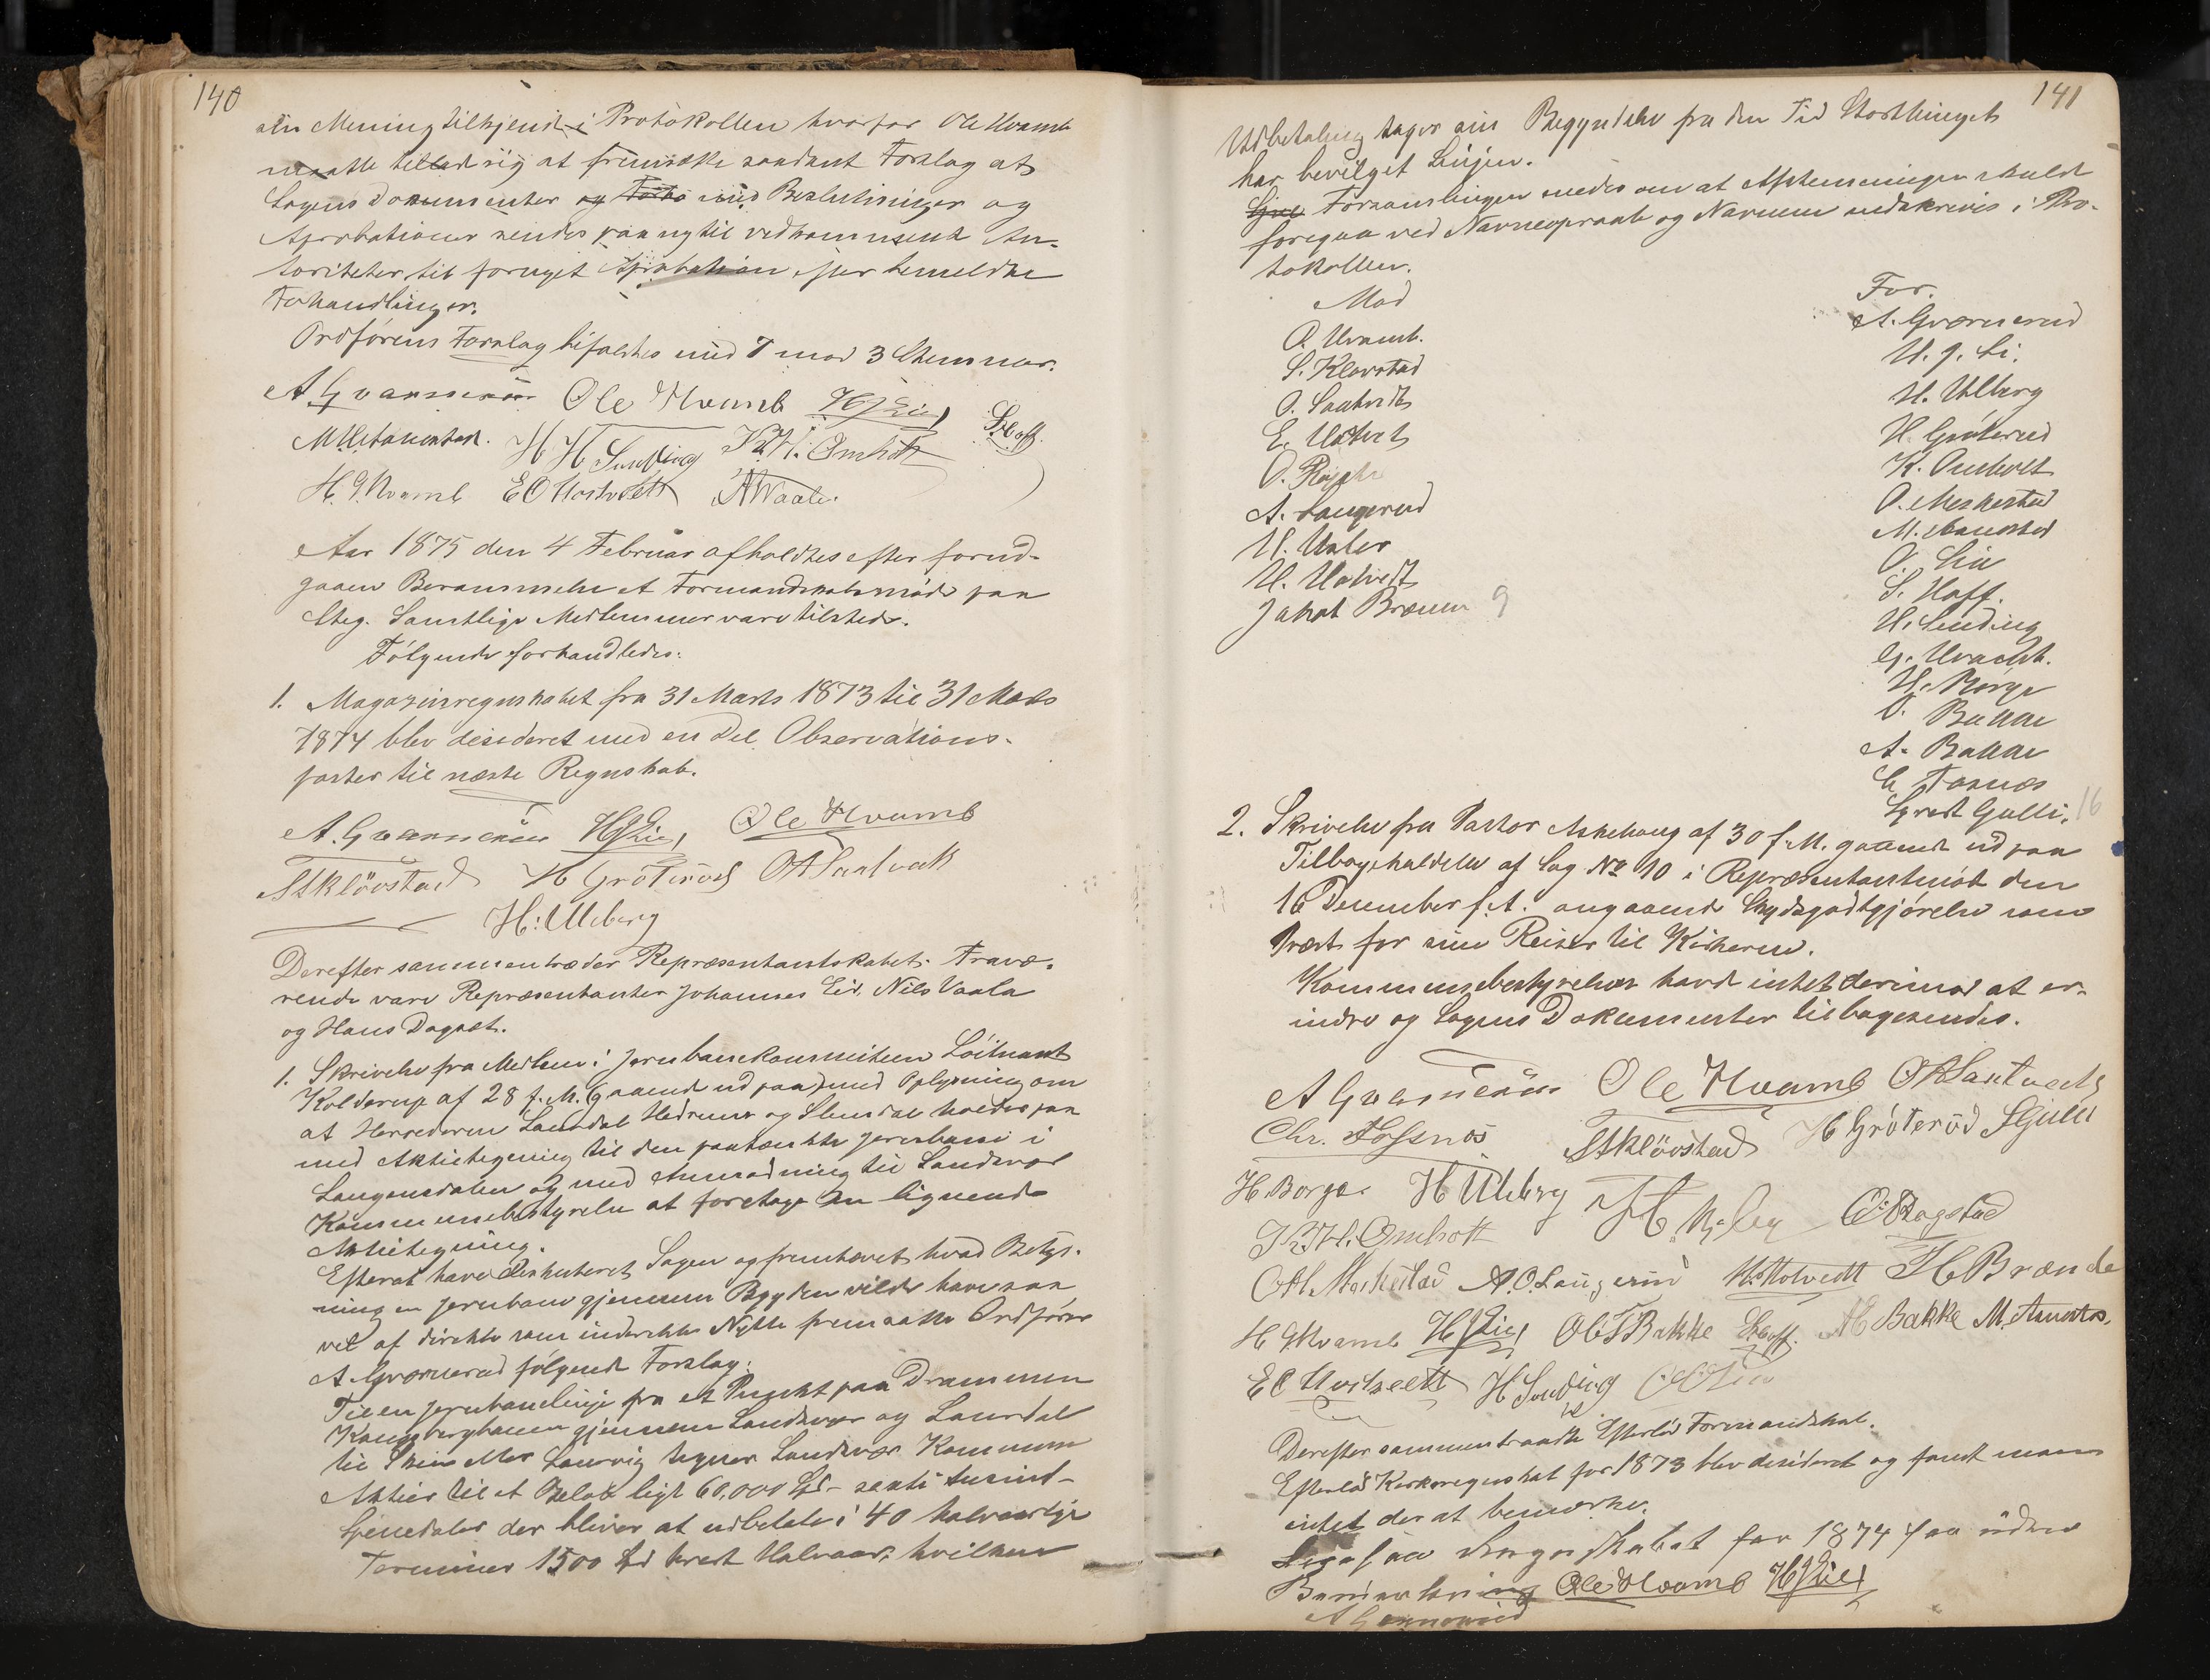 140
sin Mening tilkjend i Protokollen hvorfor Ole Hvamb
maatte tillad sig at fremsætte saadant Forslag at
Sagens Dokumenter og med Beslutninger og
Aprobationer sendes paa ny til vedkommende Au-
toriteter til fornyet Aprobation efter bemeldte
Forhandlinger.
Ordførens Forslag bifaldtes med 7 mod 3 Stemmer.
A Gværnerød Ole Hvamb HJLie S Hoff.
M. H. H Sunding K. H. Omholt
H. G. Hvamb E O Hostvedt N Vaale.
Aar 1875 den 4 Februar afholdtes efter forud-
gaaen Berammelse et Formandskabsmøde paa
Steg. Samtlige Medlemmer vare tilstede.
Følgende forhandledes:
1. Magazinregnskabet fra 31 Marts 1873 til 31 Marts
1874 blev desideret med en Del Observations-
poster til næste Regnskab.
A. Gværnerød HJLie Ole Hvamb
S. Kløvstad H Grøterød O Saatvedt
H: Ulleberg
Derefter sammentræder Repræsentantskabet. Fravæ-
rende vare Repræsentanter Johannes Eid, Nils Vaala
og Hans Dagset.
1. Skrivelse fra Medlem i Jernbanekommiteen Løitnant
Kolderup af 28 f. M. (gaaende ud paa) med Oplysning om
at Herrederne Laurdal Hedrum og Slemdal holdes paa
med Aktietegning til den paatænkte Jernbane i
Laugendalen og med Anmodning til Sandsvær
Kommunebestyrelse at foretage en lignende
Aktietegning.
Efterat have diskuteret Sagen og fremhævet hvad Betyd-
ning en Jernbane gjennem Bygden vilde have saa
vel af direkte som inderekte Nytte fremsatte Ordføren
A. Gværnerød følgende Forslag:
Til en Jernbanelinje fra et Punkt paa Drammen
Kongsbergbanen gjennem Sandsvær og Laurdal
til Skien eller Laurvig tegner Sandsvær Kommune
Aktier til et Beløb ligt 60,000 Spd - sexti tusind -
Speciedaler der bliver at udbetale i 40 halvaarlige
Terminer 1500 Spd hvert Halvaar, hvilken
141
Udbetaling tager sin Begyndelse fra den Tid Storthinget
har bevilget Linjen.
Forsamlingen enedes om at Afstemningen skulde
foregaa ved Navneopraab og Navnene indskrives i Pro-
tokollen.
Mod
O. Hvamb.
S. Kløvstad
O. Saatvedt
E. Hostvedt
O.
A. Laugerud
H.
H. Hotvedt
Jakob Brænne 9
For.
A. Gværnerud
H. J. Li.
H. Ulberg
H. Grøterud
K. Omholt
O. Meskestad
M.
O. Lia
S. Hoff.
H. Sunding
G. Hvamb.
H. Borge
O. Bakke
A. Bakke
C Fosnæs
Syvert Gulli. 16
2. Skrivelse fra Pastor Askehoug af 30 f. M. gaaende ud paa
Tilbageholdelse af Sag No 10 i Repræsentantmøde den
16 December f. A. angaaende Skydsgodtgjørelse som
Præst for sine Reiser til Kirkerne.
Kommunebestyrelsen havde intet derimod at er-
indre og Sagens Dokumenter tilbagesendes.
A Gværnerød Ole Hvamb O Saatvedt
Chr. Fossnæs S. Kløvstad H Grøterød S Gulli
H. Borge. H Ulleberg
K. H. Omholt
O H. Meskestad A. O. Laugerud H. Hotvedt Brænde
H G Hvamb HJLie Ole T Bakke S Hoff. A Bakke
E O Hostvedt H Sunding O Lia
Derefter sammentraadte Efteløt Formandskab.
Efteløt Kirkeregnskab for 1873 blev desideret og fandt man
intet der at bemærke.
Ligesaa Regnskabet for 1874 uden
Bemærkning Ole Hvamb HJLie
A Gværnerød